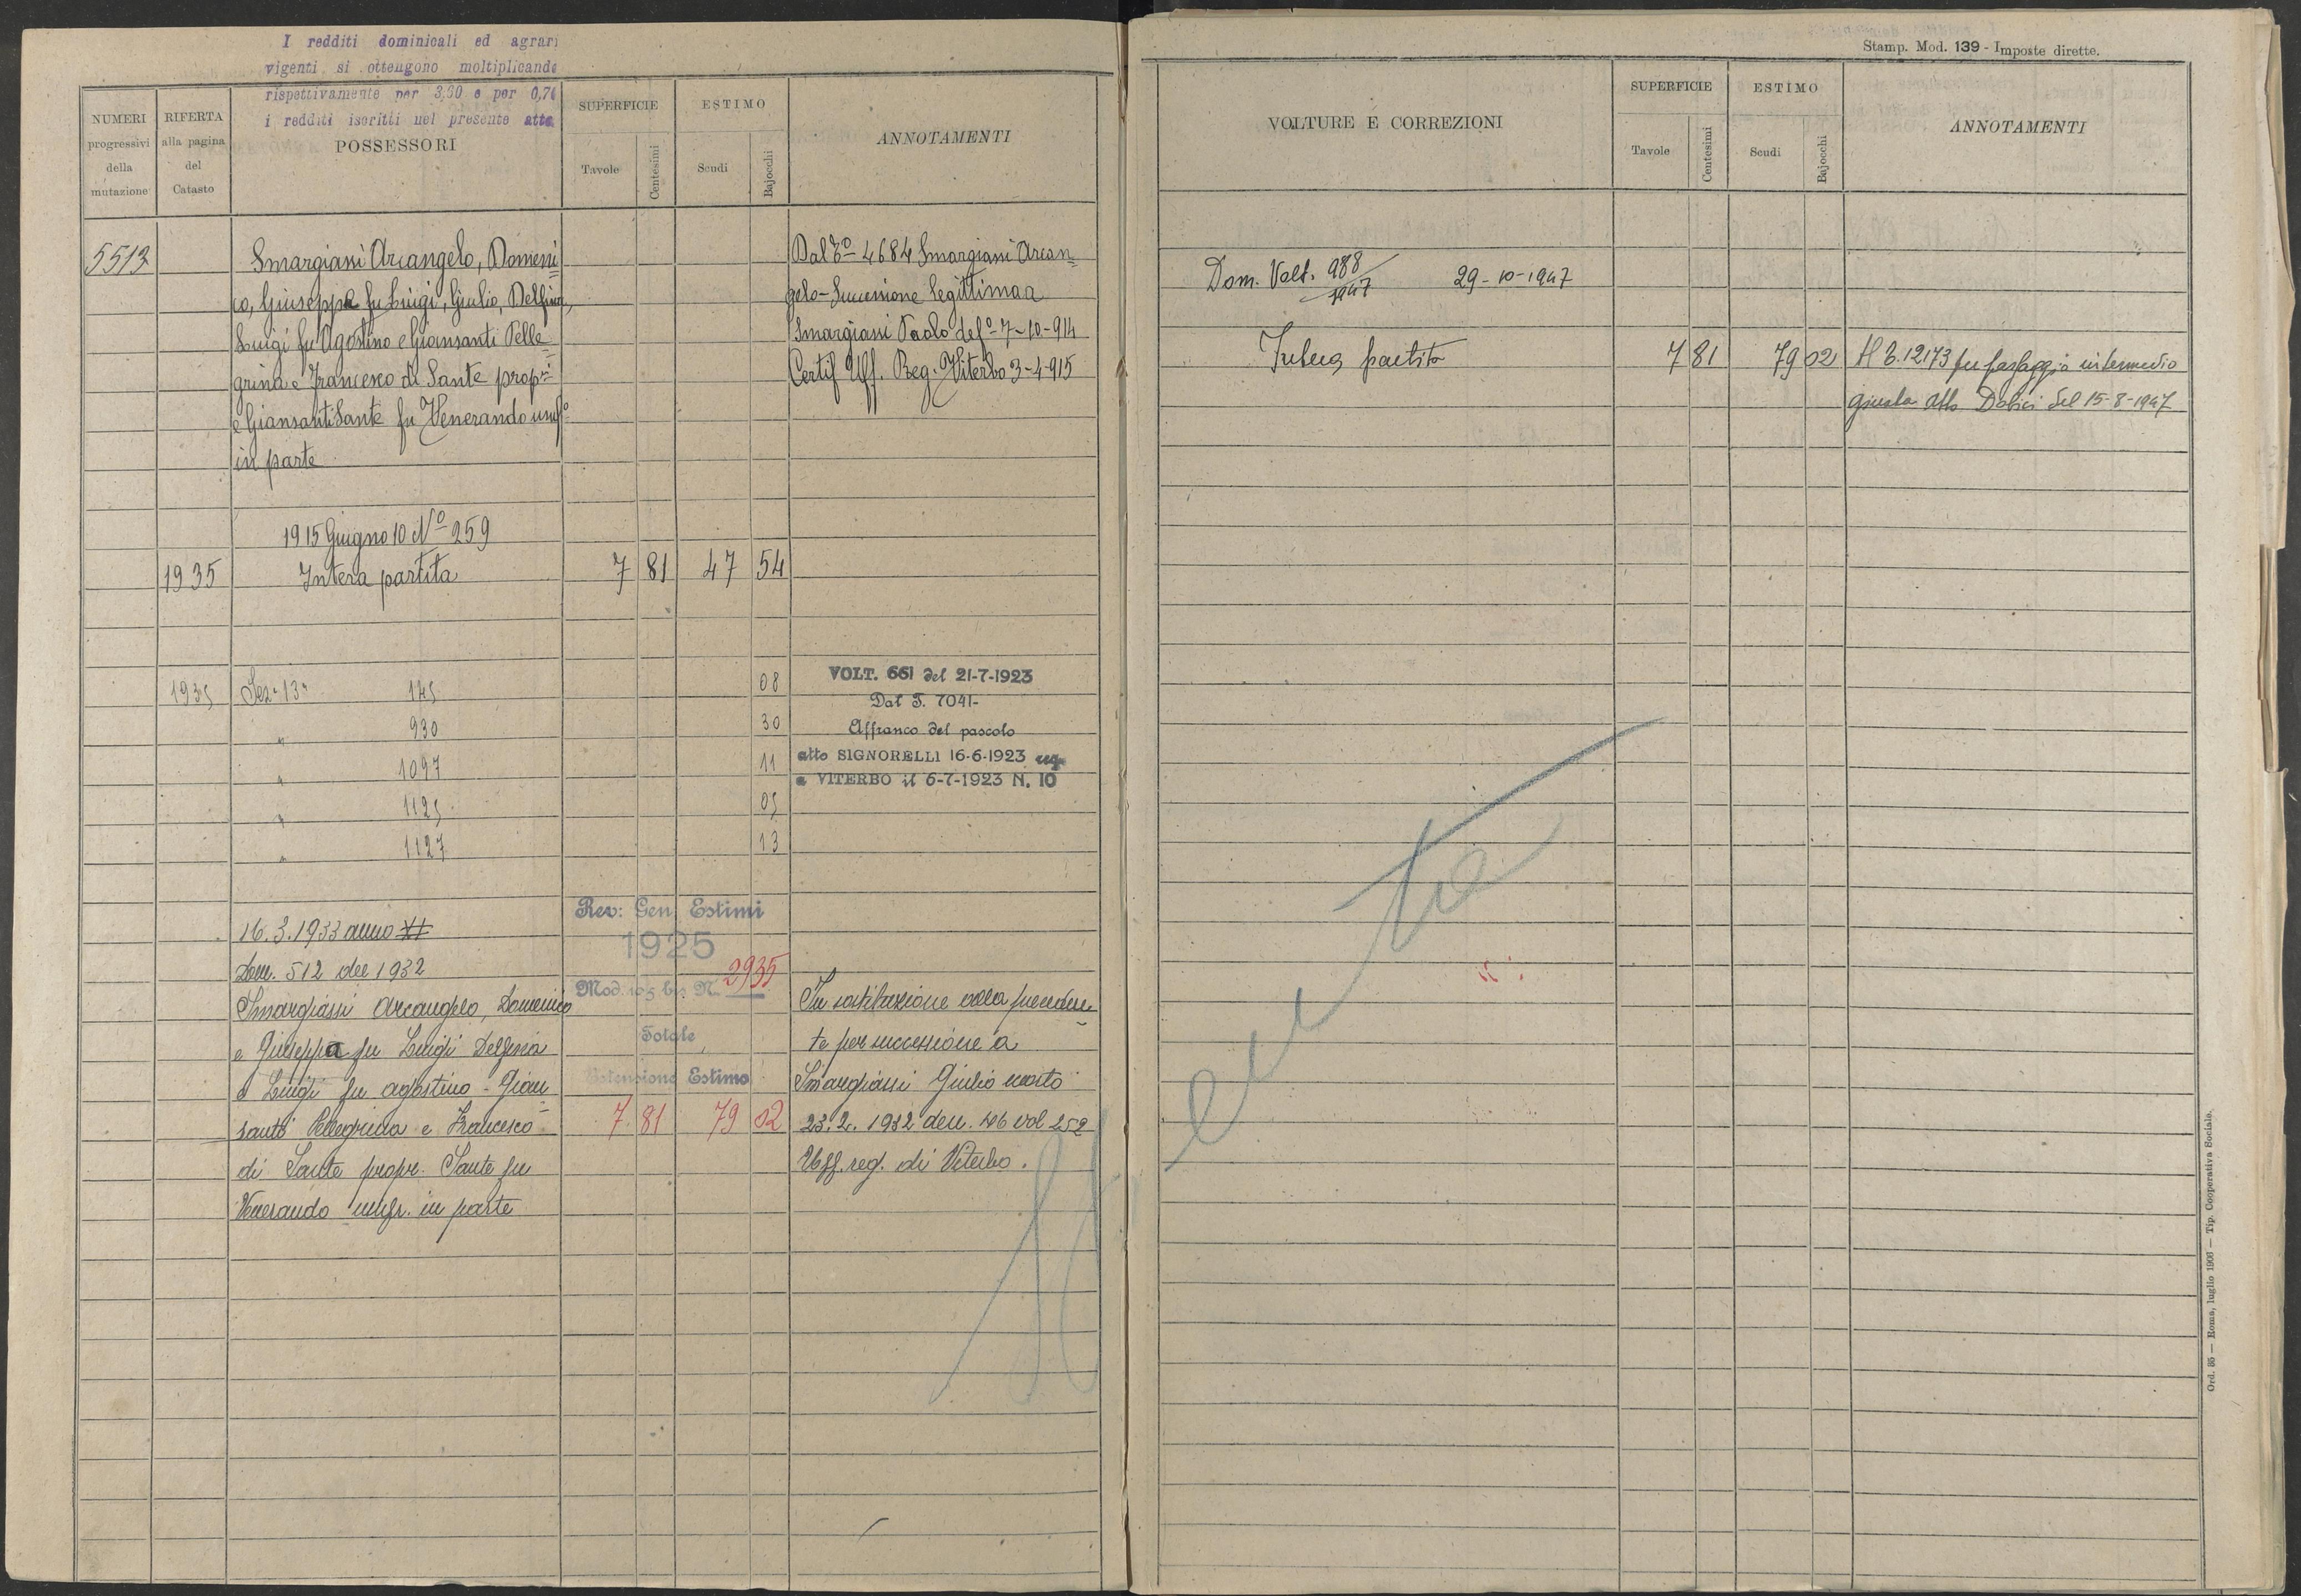 I redditi dominicali ed agrari
vigenti si ottengono moltiplicando
rispettivamente per 3,60 e per 0,76
i redditi iscritti nel presente atto
NUMERI
progressivi
della
mutazione
RIFERTA
alla pagina
del
Catasto
POSSESSORI
SUPERFICIE
Tavole
Centesimi
ESTIMO
Scudi
Bajocchi
ANNOTAMENTI
5513
Smargiassi Arcangelo, Domeni=
co, Giuseppa fu Luigi, Giulio, Delfina,
Luigi fu Agostino e Giansanti Pelle=
grina e Francesco di Sante propri
e Giansanti Sante fu Venerando usufo
in parte
Dal To 4684 Smargiassi Arcan=
gelo - Successione legittima a
Smargiassi Paolo defo 7-10-914
Certif Uff. Reg. Viterbo 3-4-915
1915 Giugno 10 No 259
1935 Intera partita 7 81 47 54
1935 Sez. 13a 175 08
" 930 30
" 1097 11
" 1125 05
" 1127 13
VOLT. 661 del 21-7-1923
Dal T. 7041-
Affranco del pascolo
atto SIGNORELLI 16-6-1923 reg
a VITERBO il 6-7-1923 N. 10
16.3.1933 anno XI
Dom. 512 del 1932
Smargiassi Arcangelo, Domenico
e Giuseppa fu Luigi Delfina
e Luigi fu Agostino - Gian
santi Pellegrina e Francesco
di Sante propr. Sante fu
Venerando usufr. in parte
Rev: Gen Estimi
1925
Mod. 105 bis N. 2935
Totale
Estensione Estimo
7 81 79 02
In sostituzione della preceden
te per successione a
Smargiassi Giulio morto
23.2.1932 den. 46 vol 252
Uff. reg. di Viterbo.
Stamp. Mod. 139 - Imposte dirette.
VOLTURE E CORREZIONI
SUPERFICIE
Tavole
Centesimi
ESTIMO
Scudi
Bajocchi
ANNOTAMENTI
Dom. Volt. 988/1947 29-10-1947
Intera partita 7 81 79 02
Al T. 12173 per passaggio intermedio
giusta atto Dobici del 15-8-1947
Ord. 85 — Roma, luglio 1906 — Tip. Cooperativa Sociale.